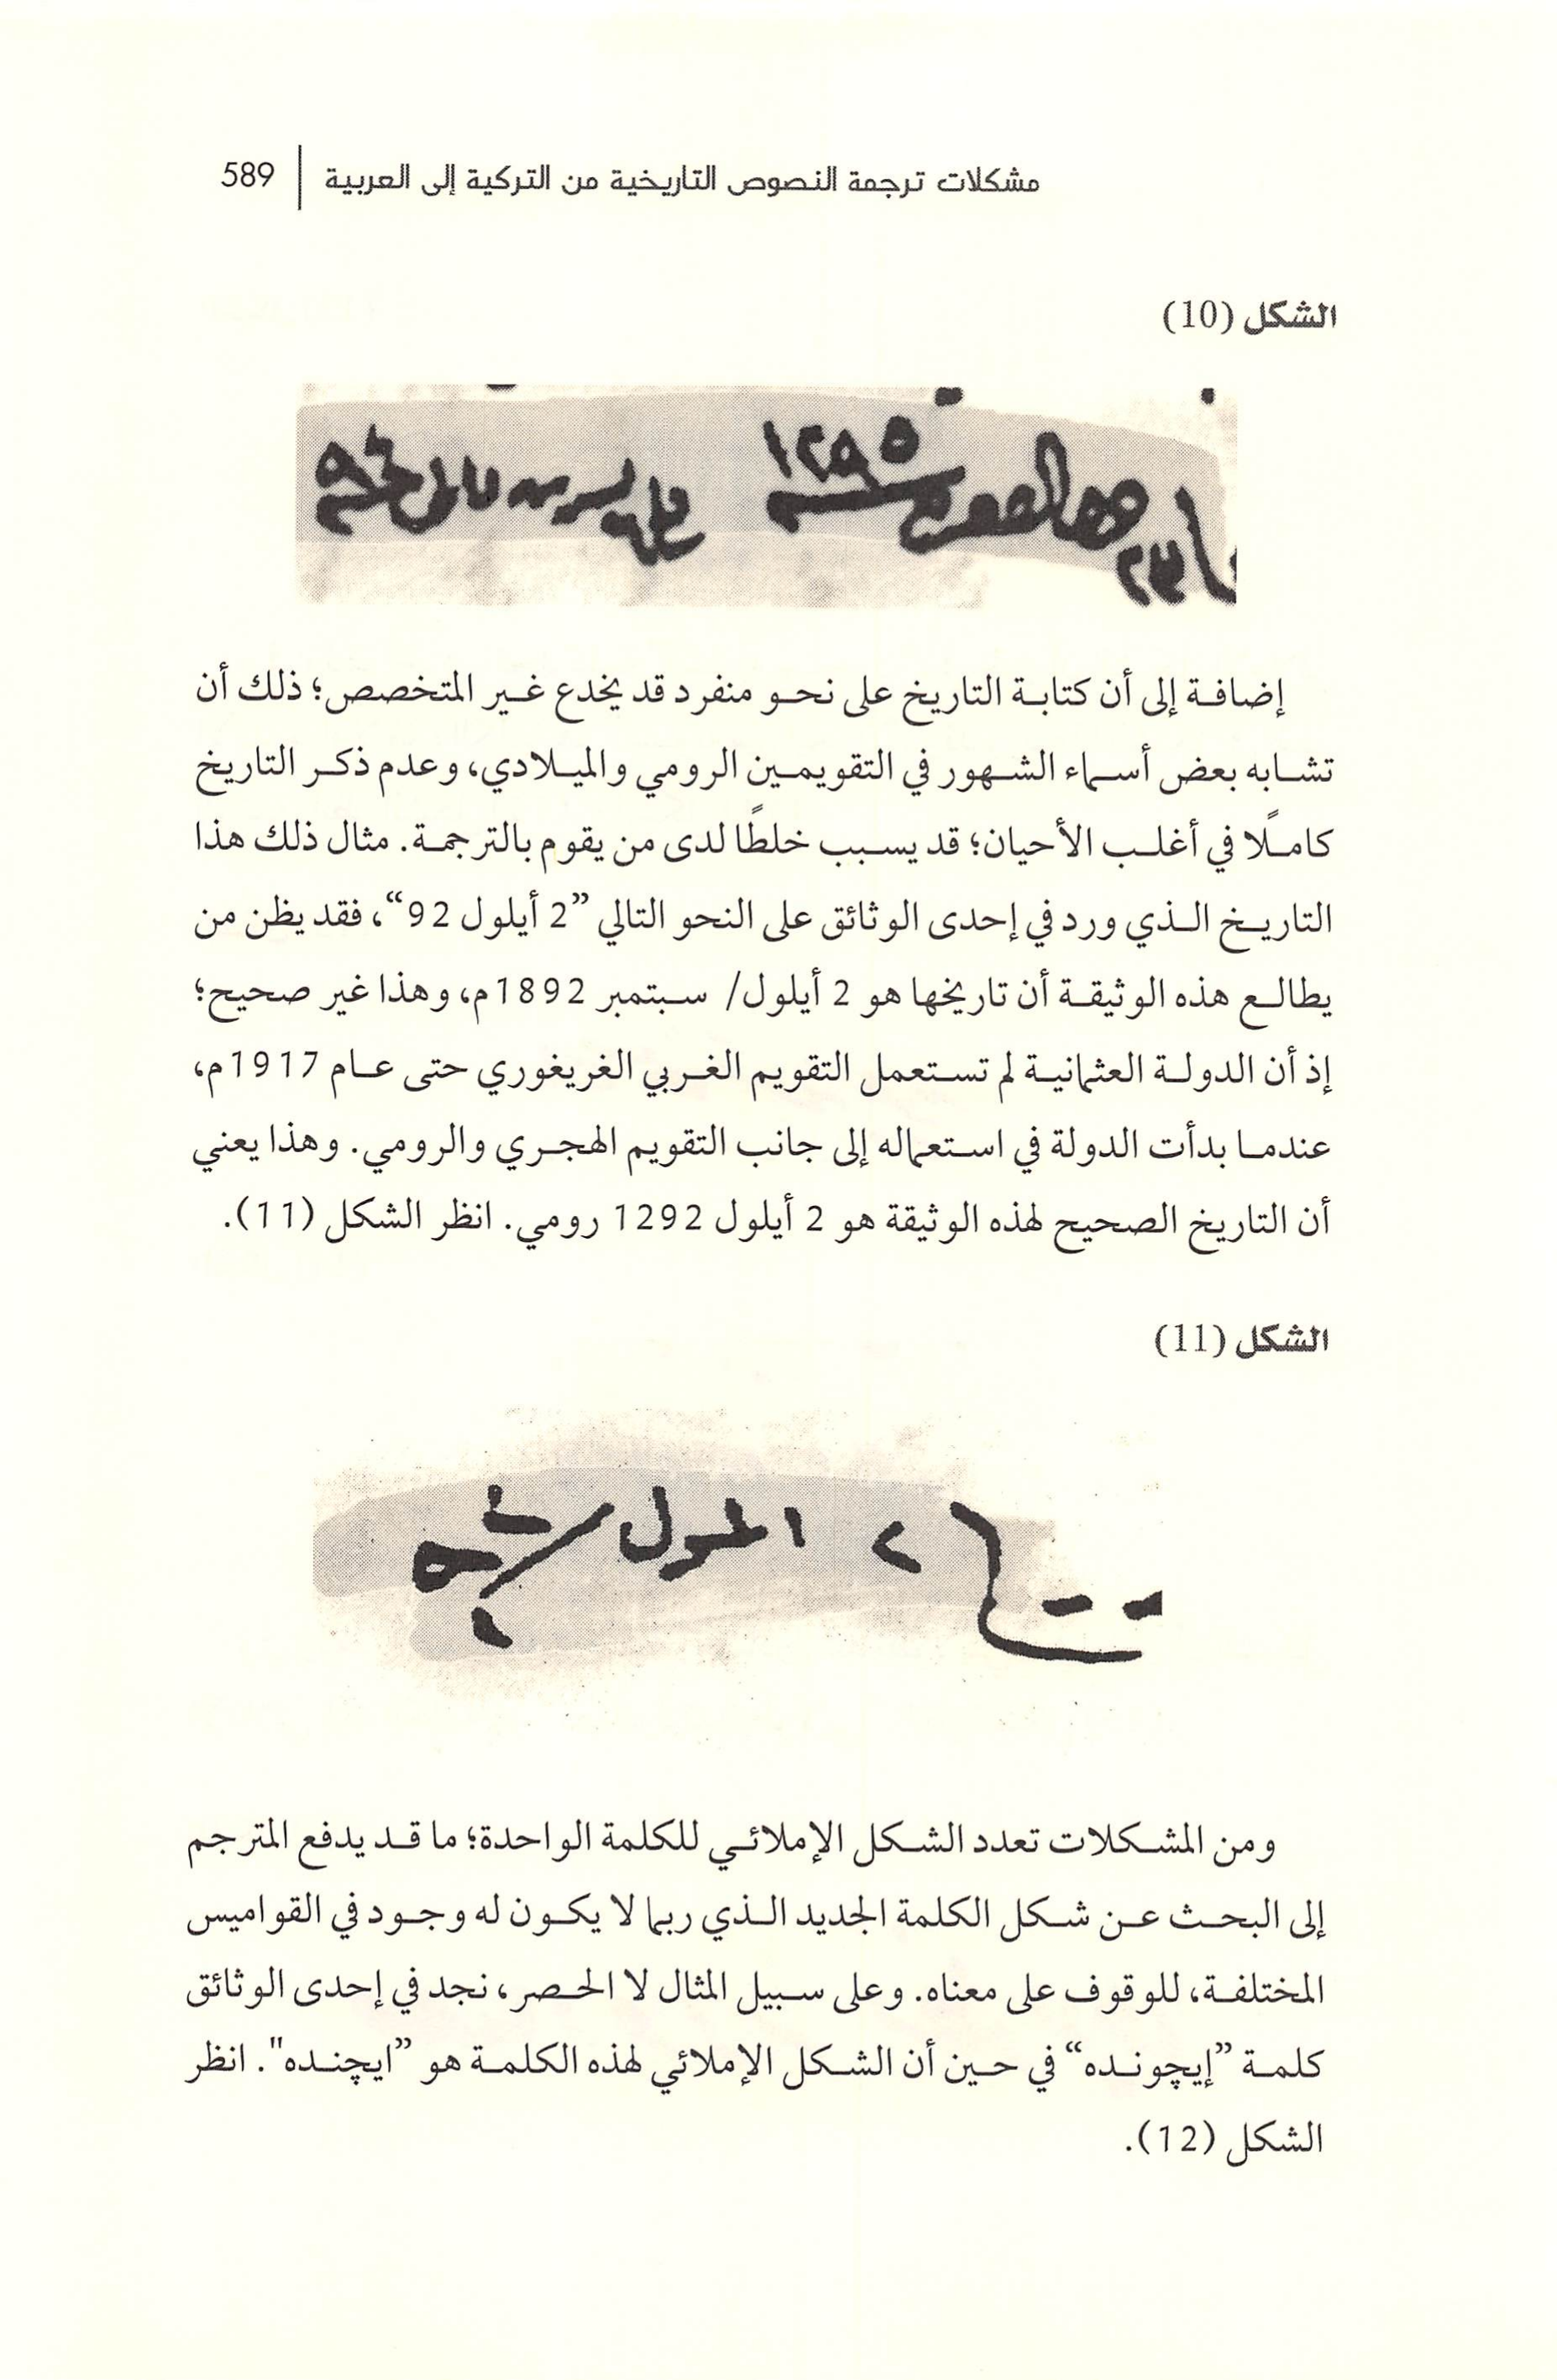 مشكلات ترجمة النصوص التاريخية من التركية إلى العربية | 589
الشكل (10)
١٢٩٥
إضافة إلى أن كتابة التاريخ على نحو منفرد قد يخدع غير المتخصص؛ ذلك أن
تشابه بعض أسماء الشهور في التقويمين الرومي والميلادي، وعدم ذكر التاريخ
كاملًا في أغلب الأحيان؛ قد يسبب خلطًا لدى من يقوم بالترجمة. مثال ذلك هذا
التاريخ الذي ورد في إحدى الوثائق على النحو التالي ”2 أيلول 92“، فقد يظن من
يطالع هذه الوثيقة أن تاريخها هو 2 أيلول/ سبتمبر 1892م، وهذا غير صحيح؛
إذ أن الدولة العثمانية لم تستعمل التقويم الغربي الغريغوري حتى عام 1917م،
عندما بدأت الدولة في استعماله إلى جانب التقويم الهجري والرومي. وهذا يعني
أن التاريخ الصحيح لهذه الوثيقة هو 2 أيلول 1292 رومي. انظر الشكل (11).
الشكل (11)
٢ ايلول
ومن المشكلات تعدد الشكل الإملائي للكلمة الواحدة؛ ما قد يدفع المترجم
إلى البحث عن شكل الكلمة الجديد الذي ربما لا يكون له وجود في القواميس
المختلفة، للوقوف على معناه. وعلى سبيل المثال لا الحصر، نجد في إحدى الوثائق
كلمة ”إيچونده“ في حين أن الشكل الإملائي لهذه الكلمة هو ”ايچنده". انظر
الشكل (12).